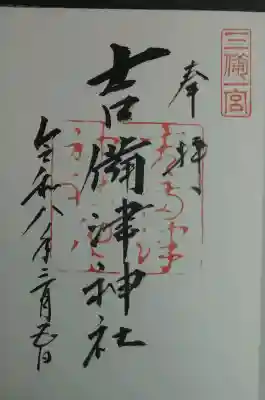 三備一宮
奉拝
吉備津神社
令和八年二月五日